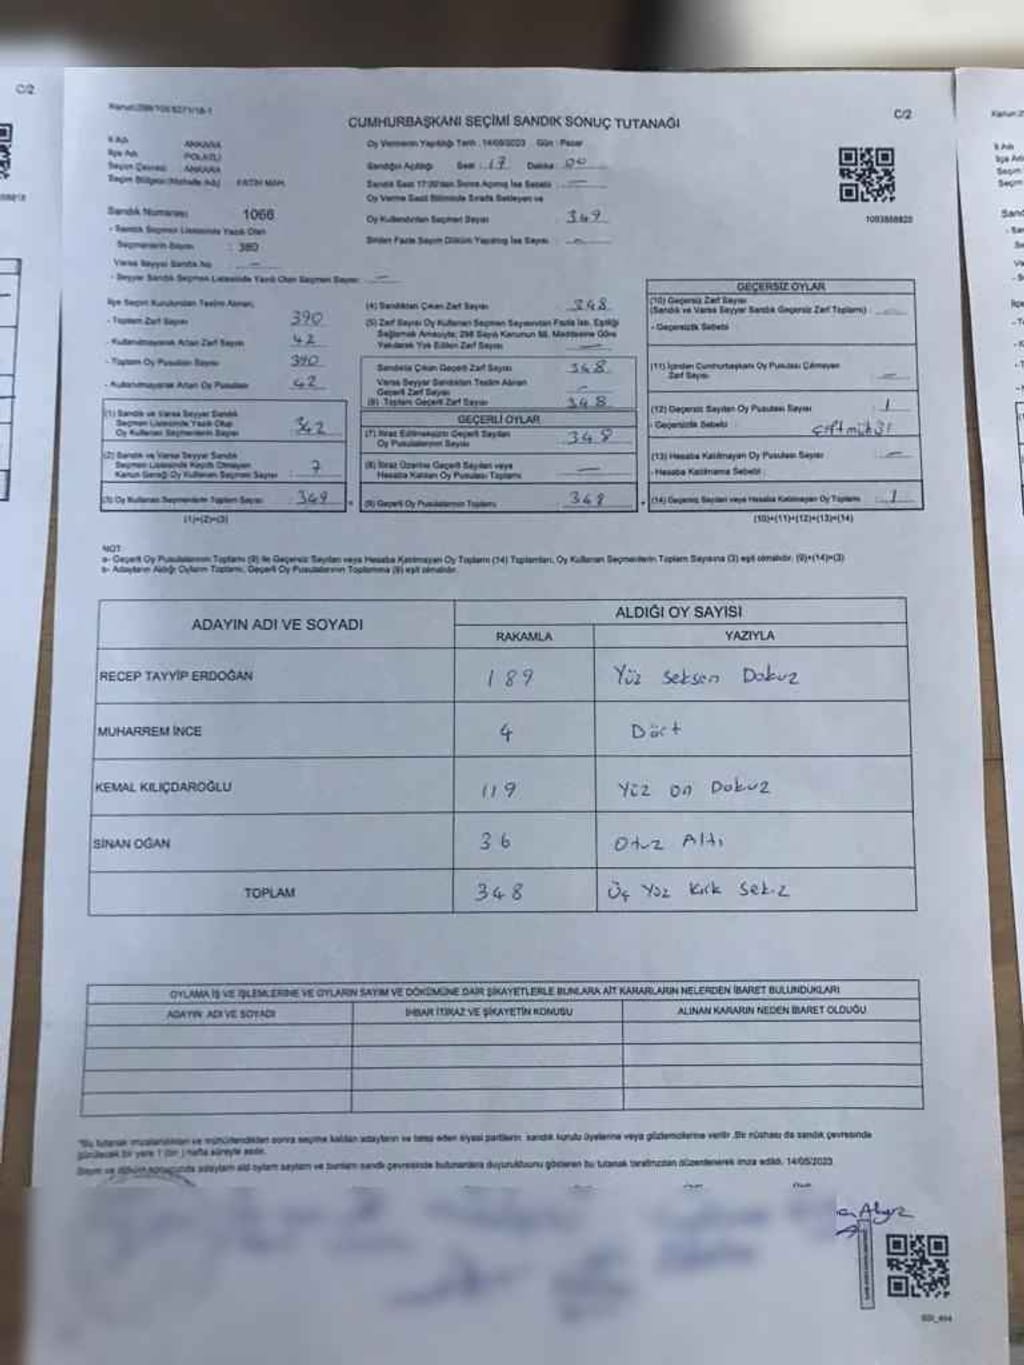 C/2
CUMHURBAŞKANI SEÇİMİ SANDIK SONUÇ TUTANAĞI
C/2
İl Adı ANKARA
İlçe Adı POLATLI
Seçim Çevresi ANKARA
Seçim Bölgesi (Mahalle Adı) FATİH MAH.
Sandık Numarası 1066
- Sandık Seçmen Listesinde Yazılı Olan
Seçmenlerin Sayısı : 380
Varsa Seyyar Sandık No —
- Seyyar Sandık Seçmen Listesinde Yazılı Olan Seçmen Sayısı —
Oy Vermenin Yapıldığı Tarih : 14/05/2023 Gün : Pazar
Sandığın Açıldığı Saat : 17 Dakika : 00
Sandık Saat 17:00'den Sonra Açılmış İse Sebebi —
Oy Verme Saati Bitiminde Sırada Bekleyen ve
Oy Kullandırılan Seçmen Sayısı 349
Birden Fazla Sayım Döküm Yapılmış İse Sayısı —
İlçe Seçim Kurulundan Teslim Alınan;
- Toplam Zarf Sayısı 390
- Kullanılmayarak Artan Zarf Sayısı 42
- Toplam Oy Pusulası Sayısı 390
- Kullanılmayarak Artan Oy Pusulası 42
(1) Sandık ve Varsa Seyyar Sandık
Seçmen Listesinde Yazılı Olup
Oy Kullanan Seçmenlerin Sayısı 342
(2) Sandık ve Varsa Seyyar Sandık
Seçmen Listesinde Kayıtlı Olmayan
Kanun Gereği Oy Kullanan Seçmen Sayısı 7
(3) Oy Kullanan Seçmenlerin Toplam Sayısı 349
(1)+(2)=(3)
(4) Sandıktan Çıkan Zarf Sayısı 348
(5) Zarf Sayısı Oy Kullanan Seçmen Sayısından Fazla İse, Eşitliği
Sağlamak Amacıyla; 298 Sayılı Kanunun 98. Maddesine Göre
Yakılarak Yok Edilen Zarf Sayısı —
Sandıkta Çıkan Geçerli Zarf Sayısı 348
Varsa Seyyar Sandıktan Teslim Alınan
Geçerli Zarf Sayısı —
(6) Toplam Geçerli Zarf Sayısı 348
GEÇERLİ OYLAR
(7) İtiraz Edilmeksizin Geçerli Sayılan
Oy Pusulalarının Sayısı 348
(8) İtiraz Üzerine Geçerli Sayılan veya
Hesaba Katılan Oy Pusulası Toplamı —
(9) Geçerli Oy Pusulalarının Toplamı 348
1093888820
GEÇERSİZ OYLAR
(10) Geçersiz Zarf Sayısı
(Sandık ve Varsa Seyyar Sandık Geçersiz Zarf Toplamı) : —
- Geçersizlik Sebebi
(11) İçinden Cumhurbaşkanı Oy Pusulası Çıkmayan
Zarf Sayısı —
(12) Geçersiz Sayılan Oy Pusulası Sayısı 1
- Geçersizlik Sebebi : Çift mühür
(13) Hesaba Katılmayan Oy Pusulası Sayısı —
- Hesaba Katılmama Sebebi :
(14) Geçersiz Sayılan veya Hesaba Katılmayan Oy Toplamı 1
(10)+(11)+(12)+(13)=(14)
NOT
a- Geçerli Oy Pusulalarının Toplamı (9) ile Geçersiz Sayılan veya Hesaba Katılmayan Oy Toplamı (14) Toplamları, Oy Kullanan Seçmenlerin Toplam Sayısına (3) eşit olmalıdır. (9)+(14)=(3)
b- Adayların Aldığı Oyların Toplamı, Geçerli Oy Pusulalarının Toplamına (9) eşit olmalıdır.
ADAYIN ADI VE SOYADI ALDIĞI OY SAYISI
RAKAMLA YAZIYLA
RECEP TAYYİP ERDOĞAN 189 Yüz Seksen Dokuz
MUHARREM İNCE 4 Dört
KEMAL KILIÇDAROĞLU 119 Yüz on Dokuz
SİNAN OĞAN 36 Otuz Altı
TOPLAM 348 Üç Yüz Kırk Sekiz
OYLAMA İŞ VE İŞLEMLERİNE VE OYLARIN SAYIM VE DÖKÜMÜNE DAİR ŞİKAYETLERLE BUNLARA AİT KARARLARIN NELERDEN İBARET BULUNDUKLARI
ADAYIN ADI VE SOYADI İHBAR İTİRAZ VE ŞİKAYETİN KONUSU ALINAN KARARIN NEDEN İBARET OLDUĞU
*Bu tutanak imzalandıktan ve mühürlendikten sonra seçime katılan adayların ve talep eden siyasi partilerin sandık kurulu üyelerine veya gözlemcilerine verilir. Bir nüshası da sandık çevresinde
görülecek bir yere 1 (bir) hafta süreyle asılır.
Sayım ve döküm sonucunda adayların aldı oyların sayıları ve bunların sandık çevresinde bulunanlara duyurulduğunu gösteren bu tutanak tarafımızdan düzenlenerek imza edildi. 14/05/2023